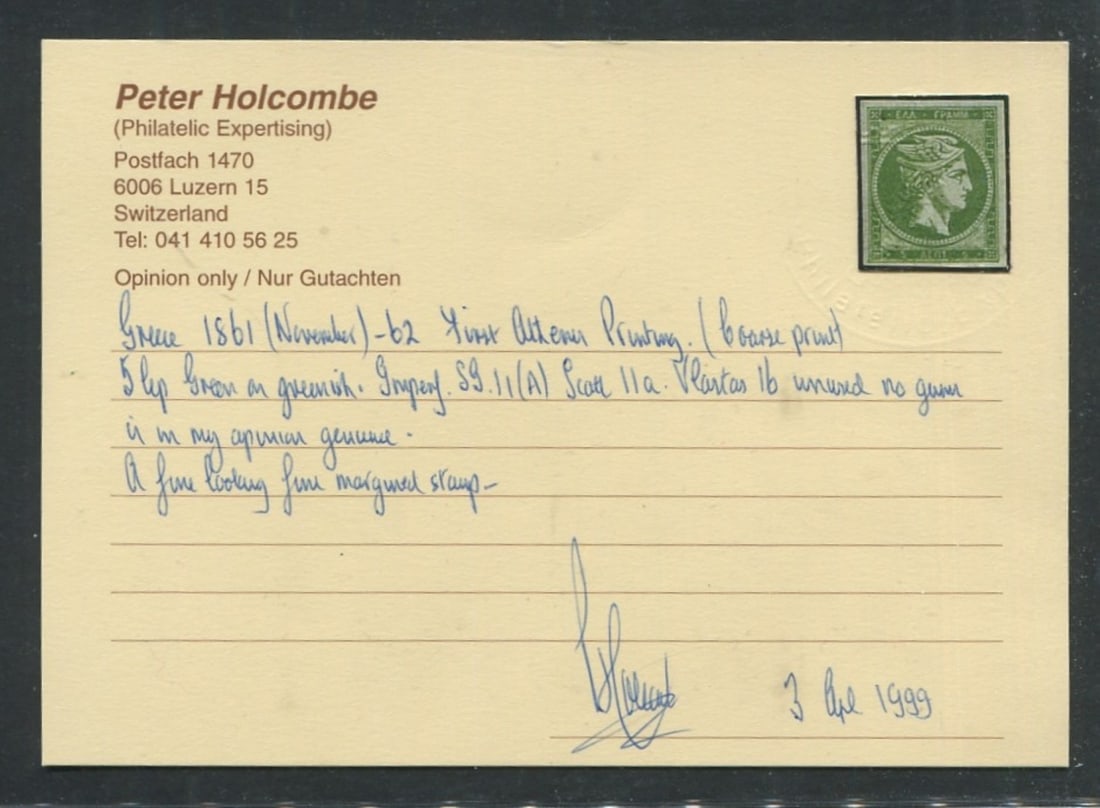 Peter Holcombe
(Philatelic Expertising)
Postfach 1470
6006 Luzern 15
Switzerland
Tel: 041 410 56 25
Opinion only / Nur Gutachten
ΕΛΛ ΓΡΑΜΜ
5 ΛΕΠΤ 5
Greece 1861 (November) - 62 First Athens Printing. (Coarse print)
5 lep Green on greenish. Imperf. SG.11(A) Scott 11a. Vlastos 16 unused no gum
is in my opinion genuine.
A fine looking fine margined stamp -
P Holcombe
3 Apl 1999